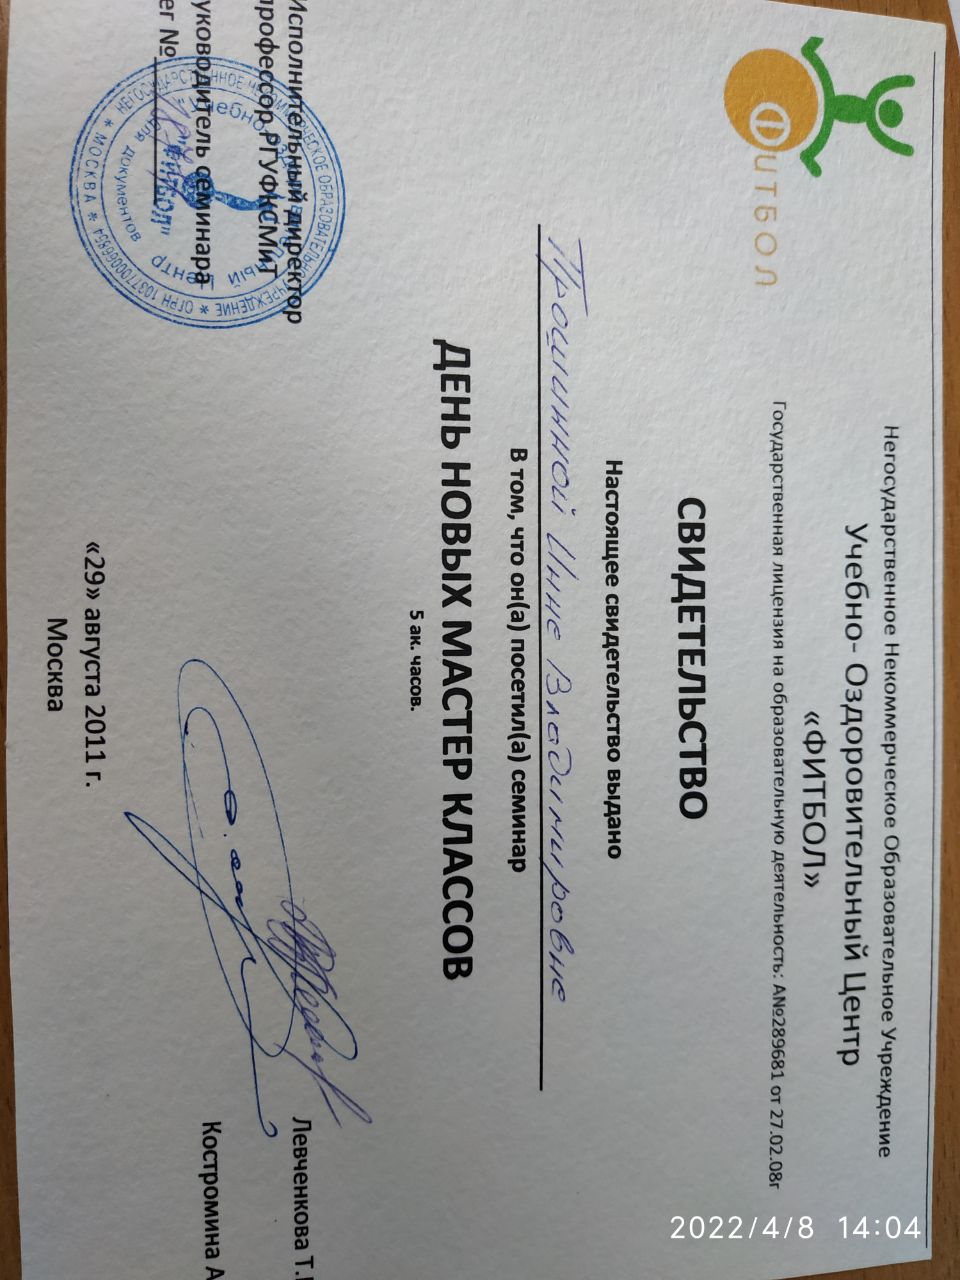 Негосударственное Некоммерческое Образовательное Учреждение
Учебно- Оздоровительный Центр
«ФИТБОЛ»
Государственная лицензия на образовательную деятельность: А№289681 от 27.02.08г
ФИТБОЛ
2022/4/8 14:04
СВИДЕТЕЛЬСТВО
Настоящее свидетельство выдано
Прошинной Инне Владимировне
В том, что он(а) посетил(а) семинар
ДЕНЬ НОВЫХ МАСТЕР КЛАССОВ
5 ак. часов.
Исполнительный директор
профессор РГУФКСМиТ
Левченкова Т.
уководитель семинара
Костромина А
ег №
НЕГОСУДАРСТВЕННОЕ НЕКОММЕРЧЕСКОЕ ОБРАЗОВАТЕЛЬНОЕ УЧРЕЖДЕНИЕ * ОГРН 1037700066854 * МОСКВА *
Учебно-Оздоровительный Центр
"ФИТБОЛ"
Для документов
«29» августа 2011 г.
Москва